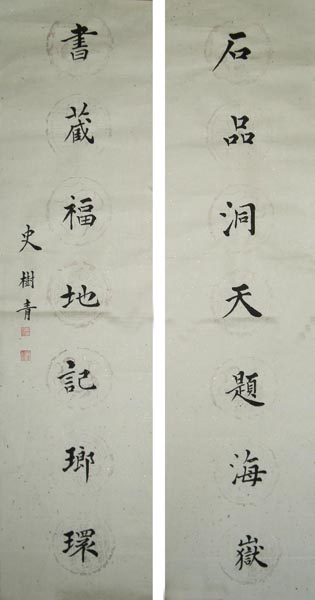 石品洞天題海嶽
書藏福地記瑯環
史樹青